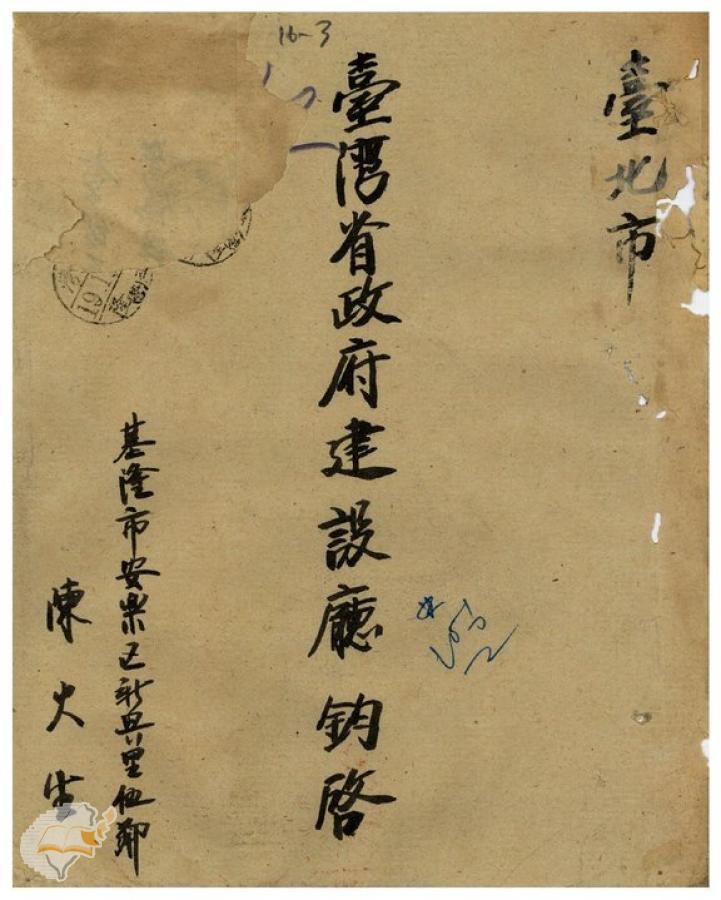 臺北市
16-3
臺灣省政府建設廳 鈞啓
基隆市安樂区新興里伍鄰
陳火生